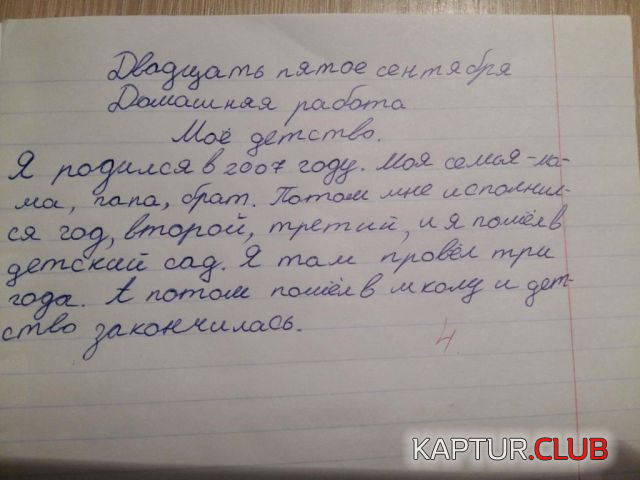 Двадцать пятое сентября
Домашняя работа
Моё детство.
Я родился в 2007 году. Моя семья - ма-
ма, папа, брат. Потом мне исполнил-
ся год, второй, третий, и я пошёл в
детский сад. Я там провёл три
года. А потом пошёл в школу и дет-
ство закончилась.
4
KAPTUR.CLUB